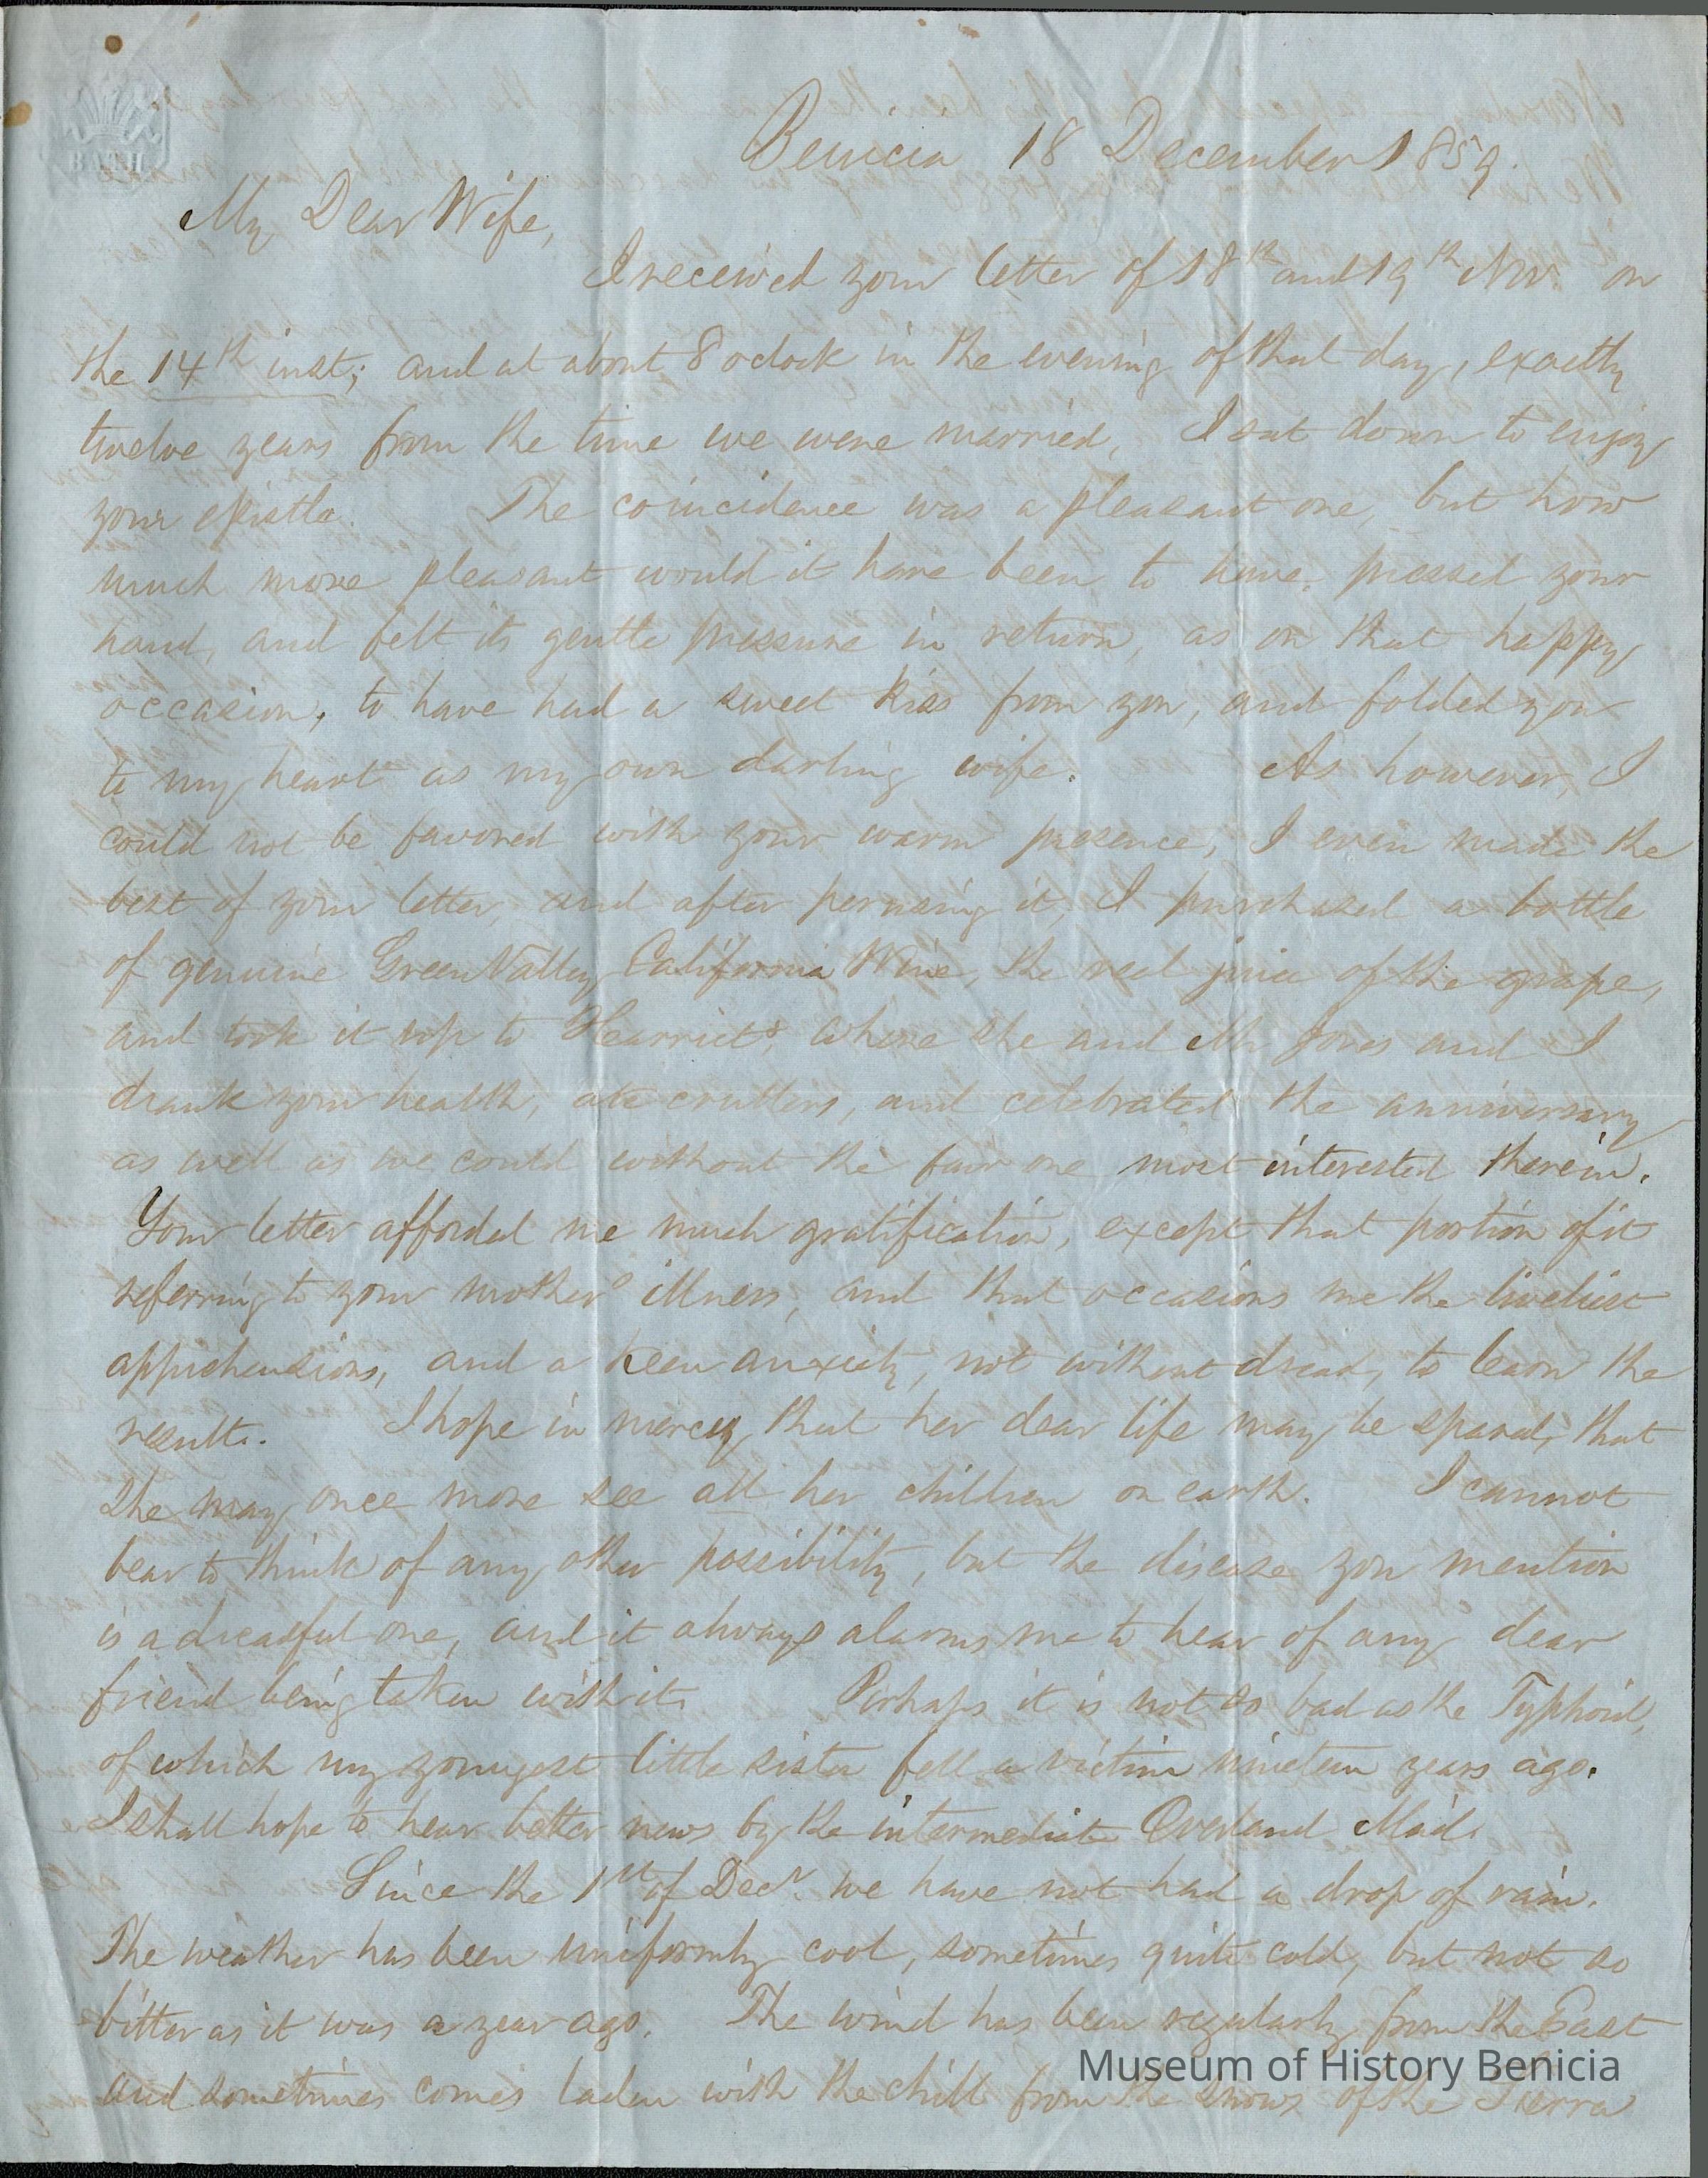 BATH
Benicia 18 December 1859.
My Dear Wife,
I received your letter of 18th and 19th Nov. on
the 14th inst; and at about 8 oclock in the evening of that day, exactly
twelve years from the time we were married, I sat down to enjoy
your epistle. The coincidence was a pleasant one, but how
much more pleasant would it have been to have pressed your
hand, and felt its gentle pressure in return, as on that happy
occasion, to have had a sweet kiss from you, and folded you
to my heart as my own darling wife. As however, I
could not be favored with your warm presence, I even made the
best of your letter, and after perusing it, I purchased a bottle
of genuine Green Valley California Wine, the red juice of the grape,
and took it up to Harriets, where she and Mr Jones and I
drank your health, ate crullers, and celebrated the anniversary
as well as we could without the fair one most interested therein.
Your letter afforded me much gratification, except that portion of it
referring to your mother's illness, and that occasions me the liveliest
apprehensions, and a keen anxiety, not without dread, to learn the
result. I hope in mercy that her dear life may be spared, that
she may once more see all her children on earth. I cannot
bear to think of any other possibility, but the disease you mention
is a dreadful one, and it always alarms me to hear of any dear
friend being taken with it. Perhaps it is not so bad as the Typhoid,
of which my youngest little sister fell a victim nineteen years ago.
I shall hope to hear better news by the intermediate Overland Mail.
Since the 1st of Decr. we have not had a drop of rain.
The weather has been uniformly cool, sometimes quite cold, but not so
bitter as it was a year ago. The wind has been regularly from the East
and sometimes comes laden with the chill from the snows of the Sierra
Museum of History Benicia